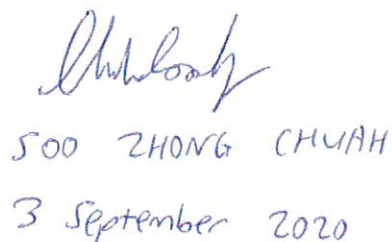 SOO ZHONG CHUAH
3 September 2020